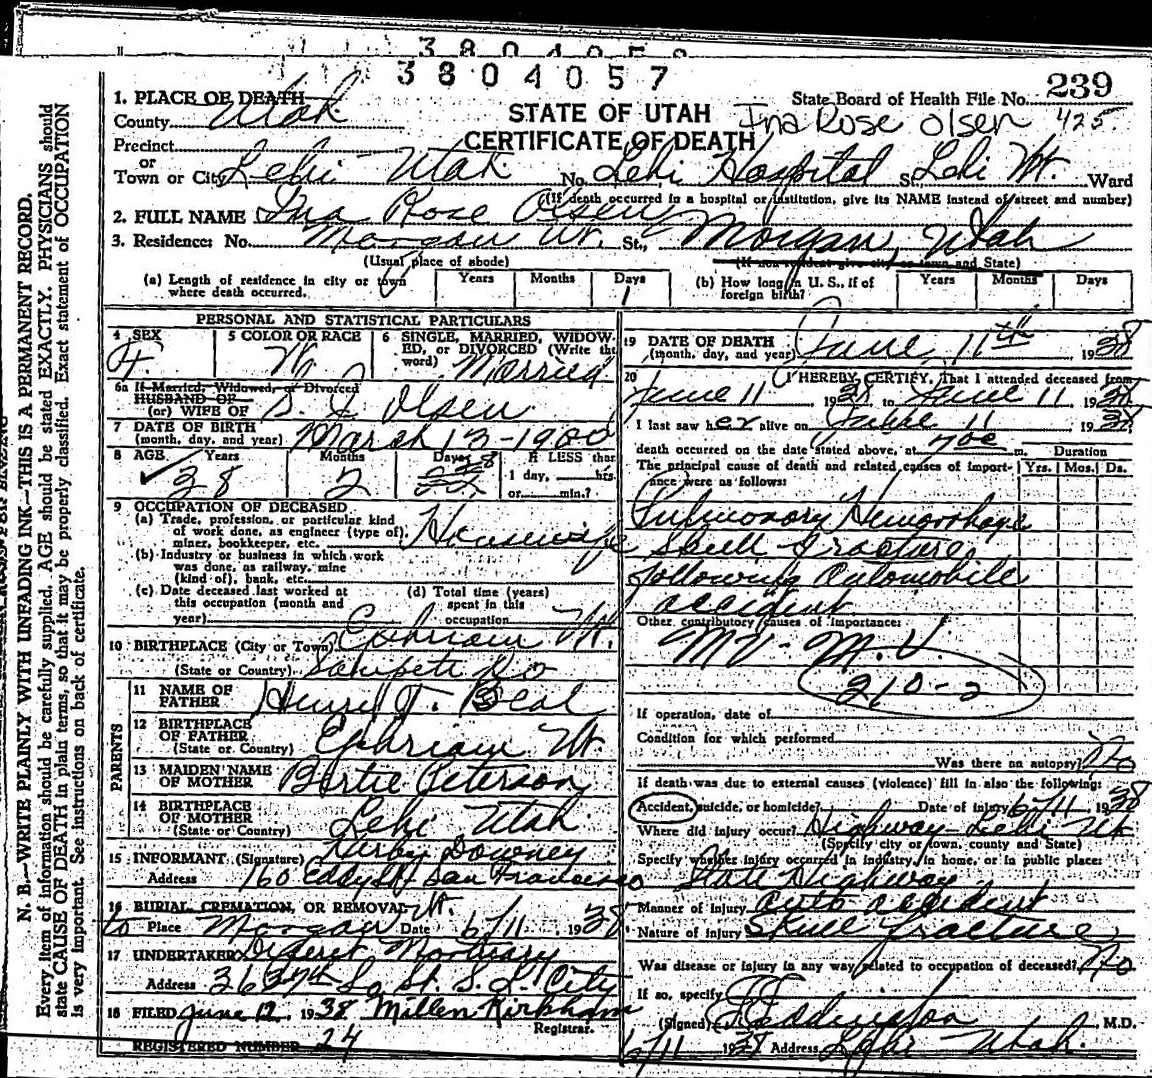 3804057
239
State Board of Health File No.
STATE OF UTAH
CERTIFICATE OF DEATH
Ina Rose Olsen 425
1. PLACE OF DEATH
County Utah
Precinct
or
Town or City Lehi Utah No. Lehi Hospital St. Lehi Ut. Ward
(If death occurred in a hospital or institution, give its NAME instead of street and number)
2. FULL NAME Ina Rose Olsen
3. Residence: No. Morgan Ut. St., Morgan, Utah
(Usual place of abode) (If non-resident give city or town and State)
(a) Length of residence in city or town where death occurred. Years Months Days 1
(b) How long in U. S., if of foreign birth? Years Months Days
PERSONAL AND STATISTICAL PARTICULARS
4 SEX F.
5 COLOR OR RACE W
6 SINGLE, MARRIED, WIDOWED, or DIVORCED (Write the word) Married
6a If Married, Widowed, or Divorced
HUSBAND OF
(or) WIFE OF Olsen
7 DATE OF BIRTH
(month, day, and year) March 13-1900
8 AGE Years 38 Months 2 Days 28 If LESS than 1 day, hrs. or min.?
9 OCCUPATION OF DECEASED
(a) Trade, profession, or particular kind of work done, as engineer (type of), miner, bookkeeper, etc. Housewife
(b) Industry or business in which work was done, as railway, mine (kind of), bank, etc.
(c) Date deceased last worked at this occupation (month and year)
(d) Total time (years) spent in this occupation
10 BIRTHPLACE (City or Town) Ephriam Ut.
(State or Country) Sanpete Co
PARENTS
11 NAME OF FATHER Henry F. Beal
12 BIRTHPLACE OF FATHER
(State or Country) Ephriam Ut.
13 MAIDEN NAME OF MOTHER Bertie Peterson
14 BIRTHPLACE OF MOTHER
(State or Country) Lehi Utah
15 INFORMANT (Signature) Kirby Downey
Address 160 Eddy St San Francisco
16 BURIAL, CREMATION, OR REMOVAL Ut.
to Place Morgan Date 6/11 1938
17 UNDERTAKER Deseret Mortuary
Address 36 So. St. S. L. City
18 FILED June 12 1938 Millen Kirkham
Registrar.
REGISTERED NUMBER 24
19 DATE OF DEATH
(month, day, and year) June 11th 1938
20 I HEREBY CERTIFY, That I attended deceased from
June 11 1938 to June 11 1938
I last saw her alive on June 11 1938
death occurred on the date stated above, at m. Duration
The principal cause of death and related causes of importance were as follows: Yrs. Mos. Ds.
Pulmonary Hemorrhage
Skull fracture
following Automobile
accident
Other contributory causes of importance:
MV - M.V.
210-2
If operation, date of
Condition for which performed
Was there an autopsy? No
If death was due to external causes (violence) fill in also the following:
Accident, suicide, or homicide? Date of injury 6/11 1938
Where did injury occur? Highway Lehi Ut
(Specify city or town, county and State)
Specify whether injury occurred in industry, in home, or in public place:
State Highway
Manner of injury auto accident
Nature of injury Skull fracture
Was disease or injury in any way related to occupation of deceased? No
If so, specify
(Signed) Eddington M.D.
6/11 1938 Address Lehi Utah.
N. B.—WRITE PLAINLY WITH UNFADING INK—THIS IS A PERMANENT RECORD.
Every item of information should be carefully supplied. AGE should be stated EXACTLY. PHYSICIANS should
state CAUSE OF DEATH in plain terms, so that it may be properly classified. Exact statement of OCCUPATION
is very important. See instructions on back of certificate.